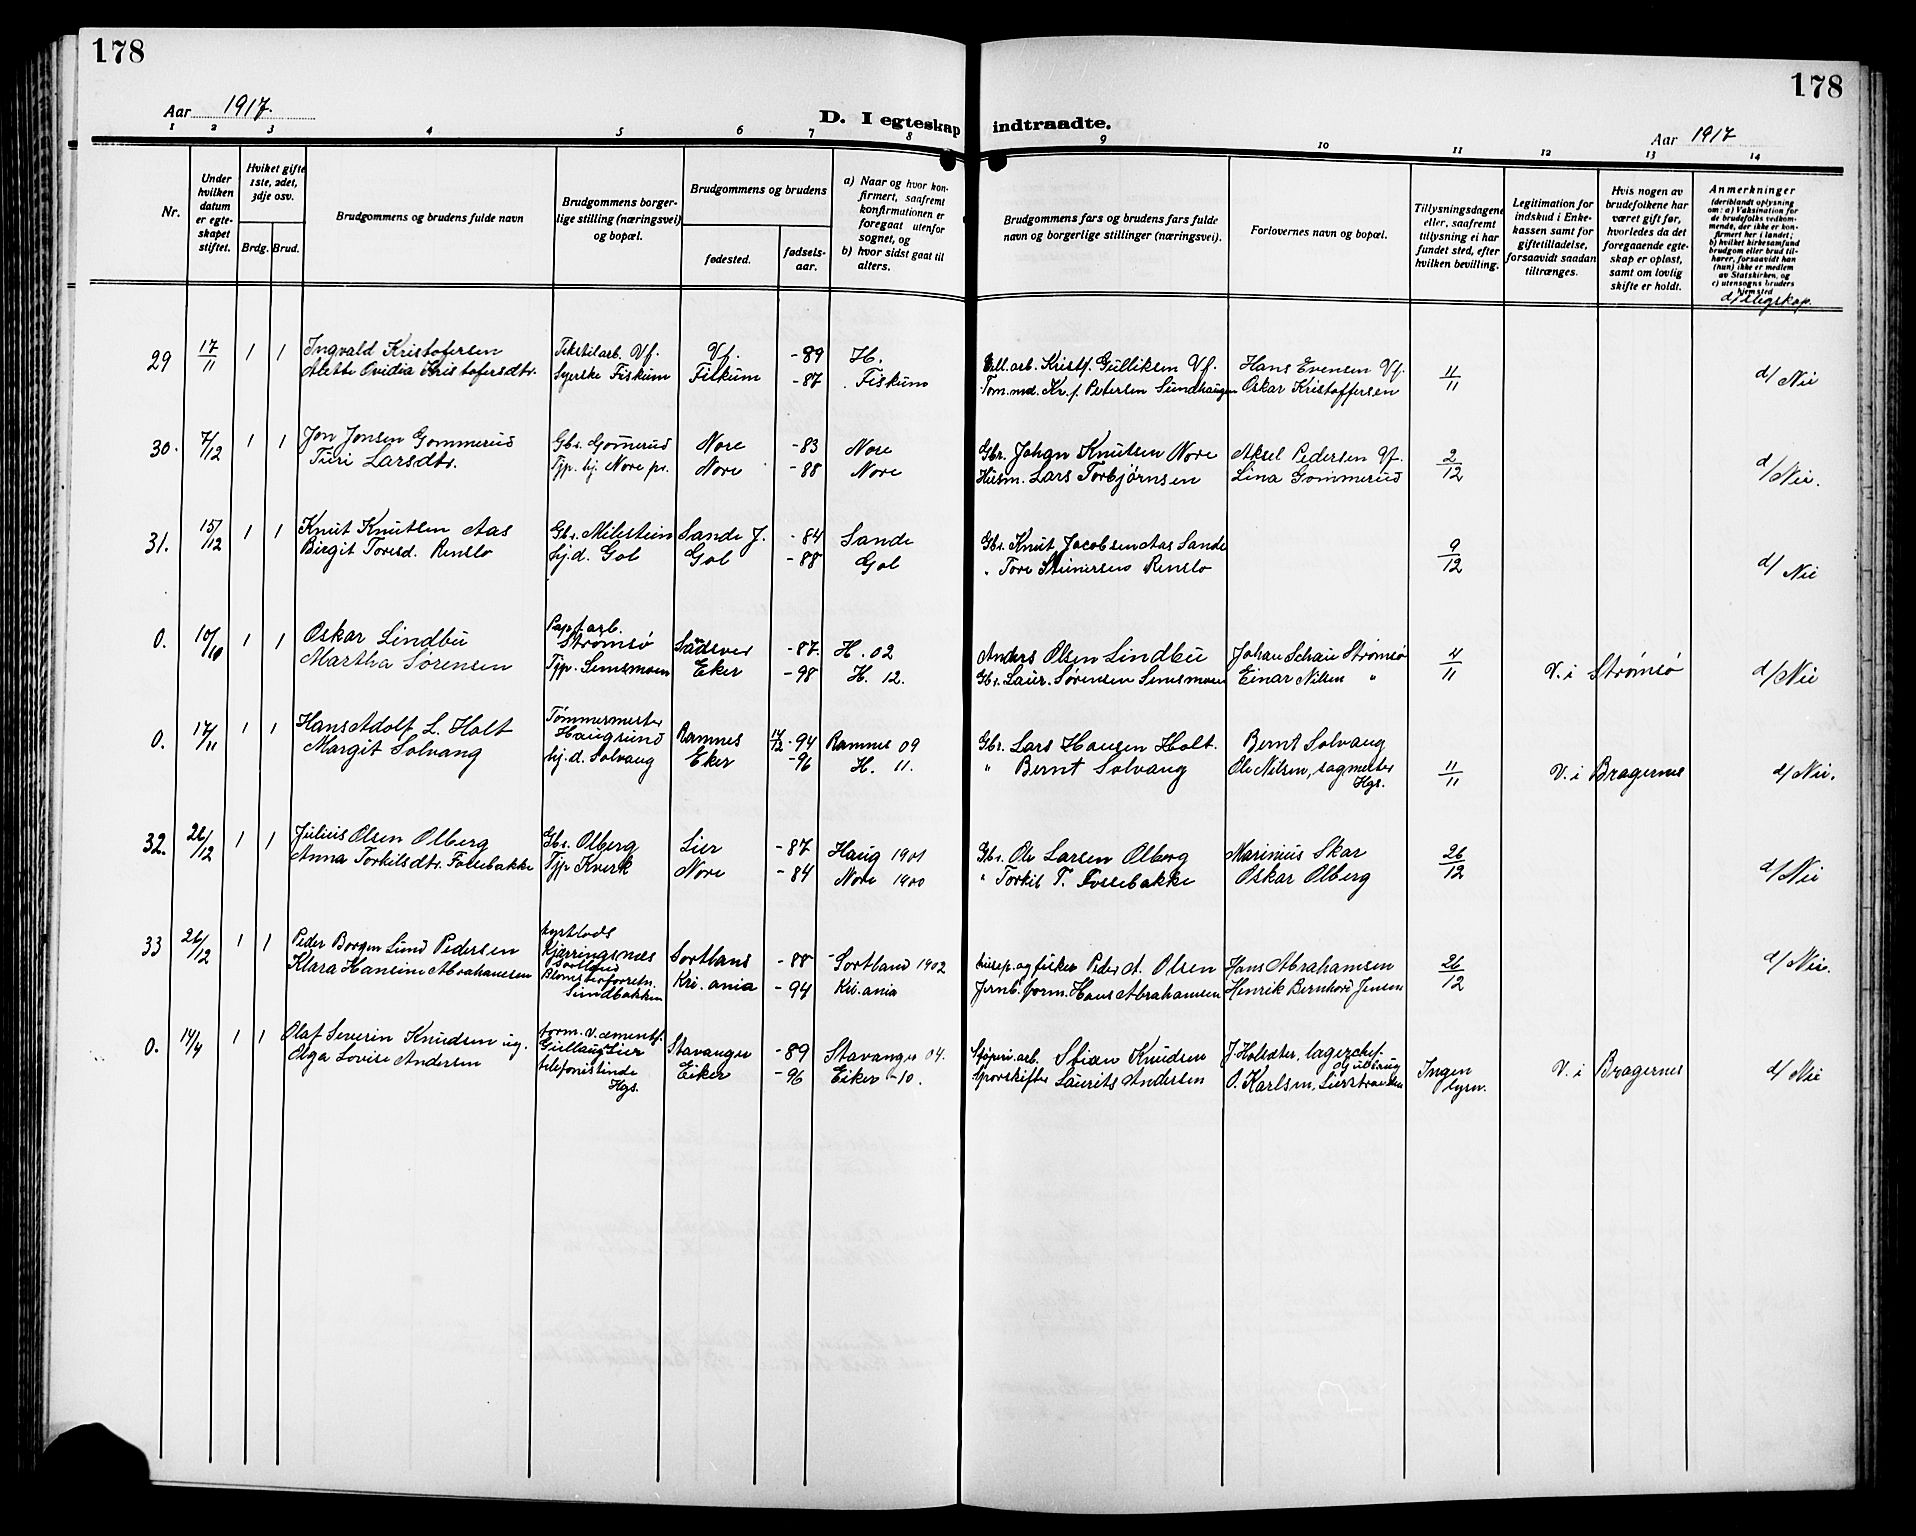 178
178
Aar 1917.
D. I egteskap indtraadte.
Aar 1917
1 2 3 4 5 6 7 8 9 10 11 12 13 14
Nr.
Under hvilken datum er egteskapet stiftet.
Hvilket gifte 1ste, 2det, 3dje osv.
Brdg. Brud.
Brudgommens og brudens fulde navn
Brudgommens borgerlige stilling (næringsvei) og bopæl.
Brudgommens og brudens
fødested.
fødselsaar.
a) Naar og hvor konfirmert, saafremt konfirmationen er foregaat utenfor sognet, og
b) hvor sidst gaat til alters.
Brudgommens fars og brudens fars fulde navn og borgerlige stillinger (næringsvei).
Forlovernes navn og bopæl.
Tillysningsdagene eller, saafremt tillysning ei har fundet sted, efter hvilken bevilling.
Legitimation for indskud i Enkekassen samt for giftetilladelse, forsaavidt saadan tiltrænges.
Hvis nogen av brudefolkene har været gift før, hvorledes da det foregaaende egteskap er opløst, samt om lovlig skifte er holdt.
Anmerkninger
(deriblandt oplysning om: a) Vaksination for de brudefolks vedkommende, der ikke er konfirmert her i landet; b) hvilket kirkesamfund brudgom eller brud tilhører, forsaavidt han (hun) ikke er medlem av Statskirken, og c) utensogns bruders hjemsted
d) slegskap.
29 17/11 1 1 Ingvald Kristofersen Tekstilarb. Vf. Vf. -89 H. Kristf. Gulliksen Vf. Hans Evensen Vf. 11/11 d/ Nei
Alette Ovidia Kristofersdtr. Syerske Fiskum Fiskum -87 Fiskum Tom.md. Kr.f. Petersen Sundhaugen Oskar Kristoffersen
30. 7/12 1 1 Jon Jonsen Gommerud Gbr. Gomerud Nore -83 Nore Gbr. Johan Knutsen Nore Aksel Pedersen Vf. 2/12 d/ Nei.
Turi Larsdtr. Tjp. hj. Nore pr. Nore -88 Nore Husm. Lars Torbjørnsen Lina Gommerud
31. 15/12 1 1 Knut Knutsen Aas Gbr. Milestein Sande J. -84 Sande Gbr. Knut Jacobsen Aas Sande 9/12 d/ Nei
Birgit Toresd. Renslo hj.d. Gol Gol -88 Gol " Tore Steinersen Renslo
0. 10/10 1 1 Oskar Lindbu Papf.arb. Strømsø Sandsver -87. H. 02 Anders Olsen Lindbu Johan Schau Strømsø 4/11 V. i Strømsø d/ Nei
Martha Sørensen Tjp. Semsmoen Eker -98 H. 12. Gbr. Laur. Sørensen Semsmoen Einar Nilsen "
0. 17/11 1 1 Hans Adolf L. Holt Tømmermester Haugsund Ramnes 17/2 -94 Ramnes 09 Gbr. Lars Hansen Holt. Bernt Solvang 11/11 V. i Bragernes d/ Nei.
Margit Solvang hj.d. Solvang Eker -96 H. 11. " Bernt Solvang Ole Nilsen, sagmester Hgs.
32. 26/12 1 1 Julius Olsen Olberg Gbr. Olberg Lier -87 Haug 1901 Gbr. Ole Larsen Olberg Marinius Skar 26/12 d/ Nei
Anna Torkilsdtr. Fossebakke Tjp Kverk Nore -84 Nore 1900 " Torkil T. Fossebakke Oskar Olberg
33 26/12 1 1 Peder Borgen Lund Pedersen kystlods Kjerringnæs Sortland Sortland -88 Sortland 1902 Peder A. Olsen Hans Abrahamsen 26/12 d/ Nei.
Klara Hansine Abrahamsen Blomsterforretn. Lindbakken Kri.ania -94 Kri.ania Jernb.form. Hans Abrahamsen Henrik Bernhard Jensen
0. 14/4 1 1 Olaf Severin Knudsen ug. form. v. cementf. Gullaug Lier Stavanger -89 Stavanger 04. Støperiarb. Stian Knudsen J. Holseter, lagerchef. Gullaug Ingen lysn. V. i Bragernes d/ Nei
Olga Lovise Andersen telefonistinde Hgs. Eiker -96 Eiker -10. Sporskifter Laurits Andersen O. Karlsen, Lierstranden